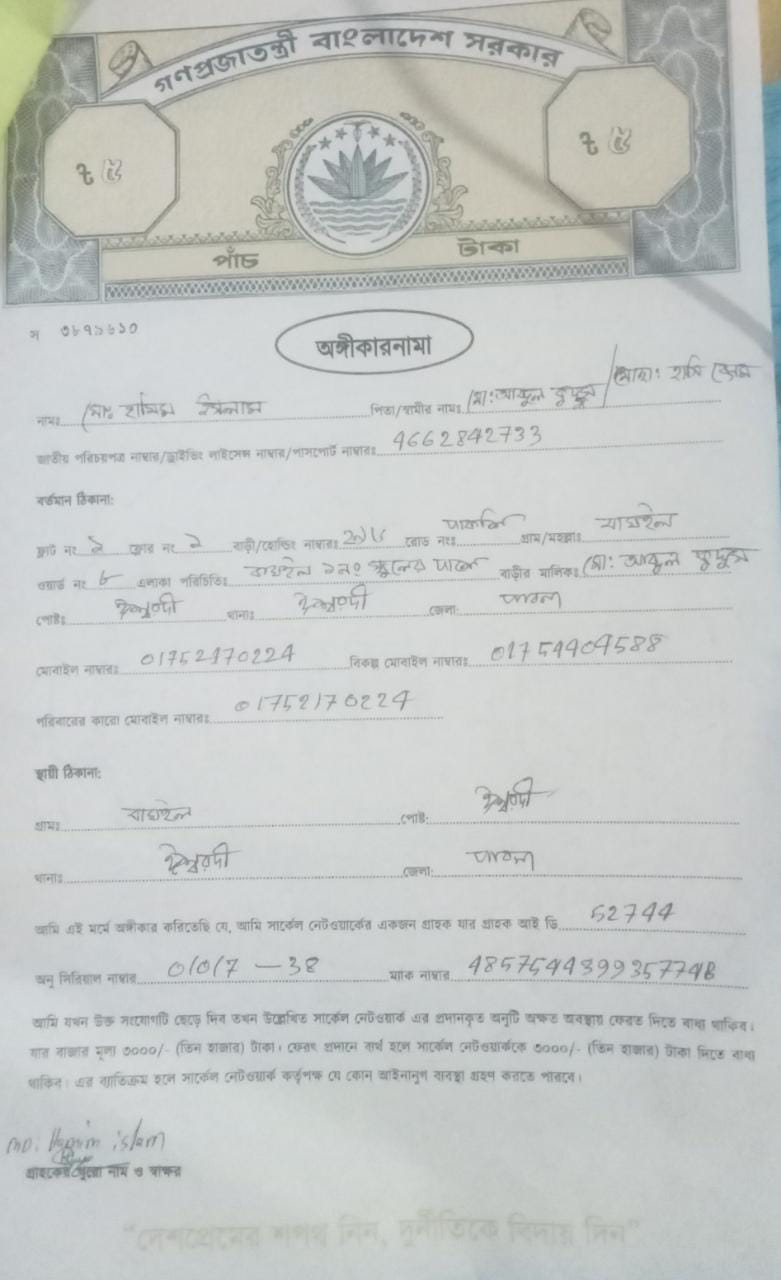 গণপ্রজাতন্ত্রী বাংলাদেশ সরকার
৳ ৫ ৳ ৫
পাঁচ টাকা
অঙ্গীকারনামা
নামঃ মোঃ হামিম ইসলাম পিতা/স্বামীর নামঃ মো: আব্দুল কুদ্দুস
জাতীয় পরিচয়পত্র নাম্বার/ড্রাইভিং লাইসেন্স নাম্বার/পাসপোর্ট নাম্বারঃ 4662842733
বর্তমান ঠিকানা:
ফ্লাট নং ২ ফ্লোর নং ২ বাড়ী/হোল্ডিং নাম্বারঃ রোড নংঃ গ্রাম/মহল্লাঃ
ওয়ার্ড নং ৮ এলাকা পরিচিতিঃ ১নং স্কুলের পাশে বাড়ীর মালিকঃ মো: আব্দুল কুদ্দুস
পোষ্টঃ ঈশ্বরদী থানাঃ ঈশ্বরদী জেলা: পাবনা
মোবাইল নাম্বারঃ 01752170224 বিকল্প মোবাইল নাম্বারঃ 01754909588
পরিবারের কারো মোবাইল নাম্বারঃ 01752170224
স্থায়ী ঠিকানা:
গ্রামঃ পোষ্ট: ঈশ্বরদী
থানাঃ ঈশ্বরদী জেলা: পাবনা
আমি এই মর্মে অঙ্গীকার করিতেছি যে, আমি সার্কেল নেটওয়ার্কের একজন গ্রাহক যার গ্রাহক আই ডি 52744
অনু সিরিয়াল নাম্বার 0/0/7 - 38 ম্যাক নাম্বার
আমি যখন উক্ত সংযোগটি ছেড়ে দিব তখন উল্লেখিত সার্কেল নেটওয়ার্ক এর প্রদানকৃত অনুটি অক্ষত অবস্থায় ফেরত দিতে বাধ্য থাকিব।
যার বাজার মূল্য ৩০০০/- (তিন হাজার) টাকা। ফেরৎ প্রদানে ব্যর্থ হলে সার্কেল নেটওয়ার্ককে ৩০০০/- (তিন হাজার) টাকা দিতে বাধ্য
থাকিব। এর ব্যতিক্রম হলে সার্কেল নেটওয়ার্ক কর্তৃপক্ষ যে কোন আইনানুগ ব্যবস্থা গ্রহণ করতে পারবে।
MD: Hamim islam
গ্রাহকের পুরো নাম ও স্বাক্ষর
"দেশপ্রেমের শপথ নিন, দুর্নীতিকে বিদায় দিন"